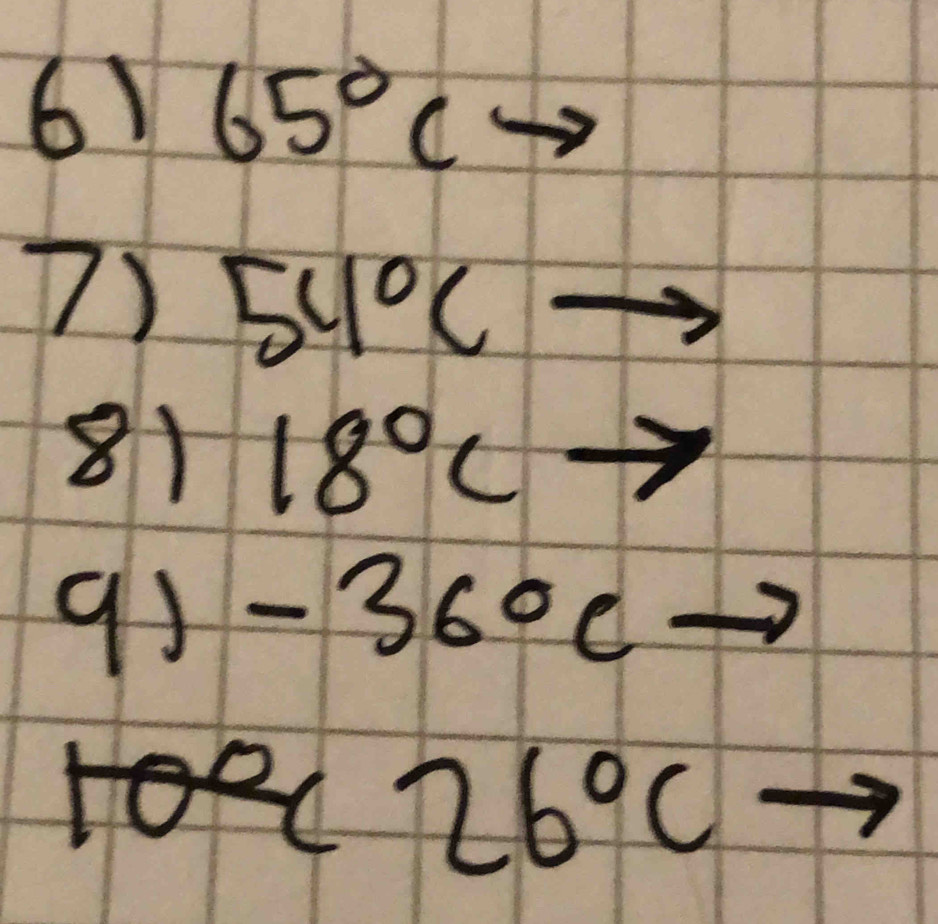 6) 65°C →
7) 54°C →
8) 18°C →
9) -36°C →
10°C 26°C →